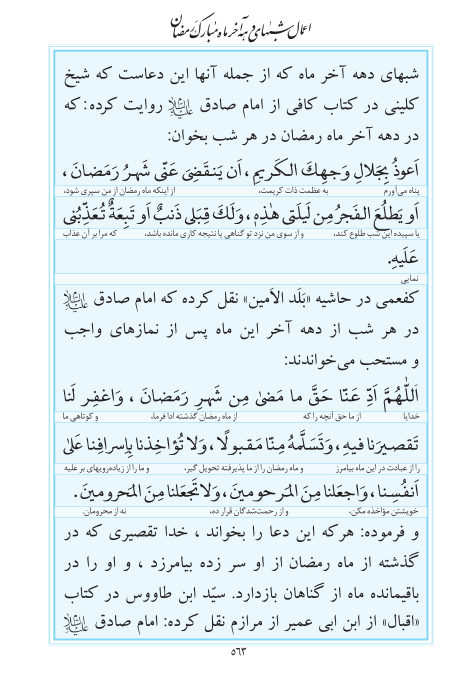 اعمال شبهای دهه آخر ماه مبارک رمضان
شبهای دهه آخر ماه که از جمله آنها این دعاست که شیخ
کلینی در کتاب کافی از امام صادق علیه‌السلام روایت کرده: که
در دهه آخر ماه رمضان در هر شب بخوان:
اَعوذُ بِجَلالِ وَجهِكَ الكَريمِ ، اَن يَنقَضِىَ عَنّى شَهرُ رَمَضانَ ،
پناه می‌آورم به عظمت ذات کریمت، از اینکه ماه رمضان از من سپری شود،
اَو يَطلُعَ الفَجرُ مِن لَيلَتى هٰذِهِ ، وَلَكَ قِبَلى ذَنبٌ اَو تَبِعَةٌ تُعَذِّبُنى
یا سپیده این شب طلوع کند، و از سوی من نزد تو گناهی یا نتیجه کاری مانده باشد، که مرا بر آن عذاب
عَلَيهِ.
نمایی
کفعمی در حاشیه «بَلَد الاَمین» نقل کرده که امام صادق علیه‌السلام
در هر شب از دهه آخر این ماه پس از نمازهای واجب
و مستحب می‌خواندند:
اَللّٰهُمَّ اَدِّ عَنّا حَقَّ ما مَضىٰ مِن شَهرِ رَمَضانَ ، وَاغفِر لَنا
خدایا از ما حق آنچه را که از ماه رمضان گذشته ادا فرما، و کوتاهی ما
تَقصيرَنا فيهِ ، وَتَسَلَّمهُ مِنّا مَقبولًا ، وَلا تُؤاخِذنا بِاِسرافِنا عَلىٰ
را از عبادت در این ماه بیامرز و ماه رمضان را از ما پذیرفته تحویل گیر، و ما را از زیاده‌رویهای بر علیه
اَنفُسِنا ، وَاجعَلنا مِنَ المَرحومينَ ، وَلا تَجعَلنا مِنَ المَحرومينَ.
خویشتن مؤاخذه مکن، و از رحمت‌شدگان قرار ده، نه از محرومان.
و فرموده: هرکه این دعا را بخواند ، خدا تقصیری که در
گذشته از ماه رمضان از او سر زده بیامرزد ، و او را در
باقیمانده ماه از گناهان بازدارد. سیّد ابن طاووس در کتاب
«اقبال» از ابن ابی عمیر از مرازم نقل کرده: امام صادق علیه‌السلام
۵۶۳